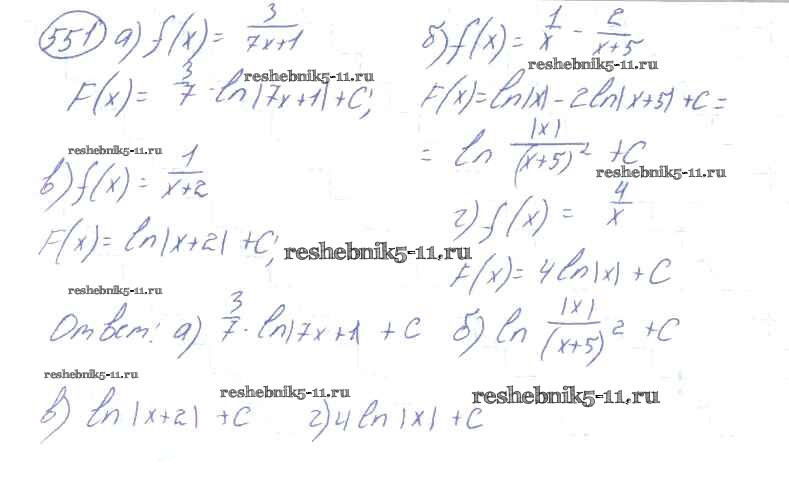 551 а) f(x) = 3/(7x+1)
F(x) = 3/7 · ln|7x+1| + C;
б) f(x) = 1/x - 2/(x+5)
F(x) = ln|x| - 2ln|x+5| + C =
= ln |x|/(x+5)² + C
в) f(x) = 1/(x+2)
F(x) = ln|x+2| + C;
г) f(x) = 4/x
F(x) = 4ln|x| + C
Ответ: а) 3/7 · ln|7x+1| + C б) ln |x|/(x+5)² + C
в) ln|x+2| + C г) 4ln|x| + C
reshebnik5-11.ru
reshebnik5-11.ru
reshebnik5-11.ru
reshebnik5-11.ru
reshebnik5-11.ru
reshebnik5-11.ru
reshebnik5-11.ru
reshebnik5-11.ru
reshebnik5-11.ru